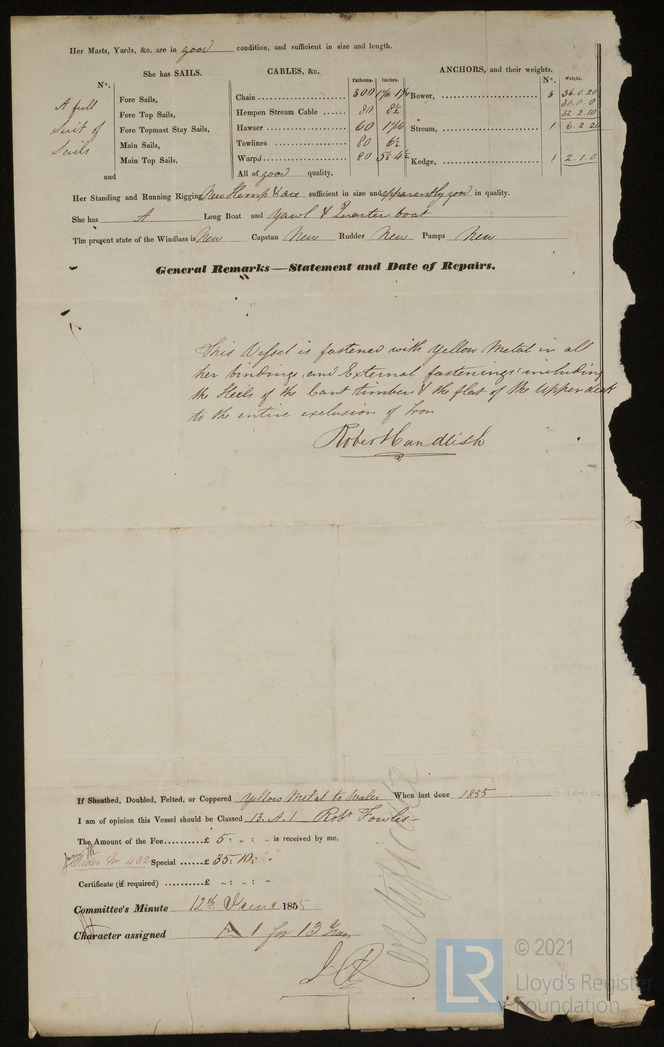 Her Masts, Yards, &c. are in good condition, and sufficient in size and length.
She has SAILS.
CABLES, &c.
ANCHORS, and their weights.
N°.
Fathoms. Inches.
N°. Weight.
A full
Suit of
Sails
and
Fore Sails,
Fore Top Sails,
Fore Topmast Stay Sails,
Main Sails,
Main Top Sails,
Chain 300
Hempen Stream Cable 80 8½
Hawser 60
Towlines 80 6½
Warps 80 5½ 4½
All of good quality.
Bower, 3 36.0.20
36.0.0
32.2.10
Stream, 1 6.2.21
Kedge, 1 2.1.0
Her Standing and Running Rigging New Hemp & are sufficient in size and apparently good in quality.
She has A Long Boat and Yawl & boat
The present state of the Windlass is New Capstan New Rudder New Pumps New
General Remarks—Statement and Date of Repairs.
This Vessel is fastened with Yellow Metal in all
her bindings, and External fastenings including
the Heels of the Cant timbers & the flat of the Upper deck
to the entire exclusion of Iron
Robert Candlish
If Sheathed, Doubled, Felted, or Coppered Yellow Metal to Wales When last done 1855
I am of opinion this Vessel should be Classed 13.A.1 Robt Fowles
The Amount of the Fee £ 5: - : - is received by me,
Special £ 35:10: -
Certificate (if required) £ - : - : -
Committee's Minute 12th June 1855
Character assigned A 1 for 13 Years
Certificate
LR
© 2021
Lloyd's Register
Foundation